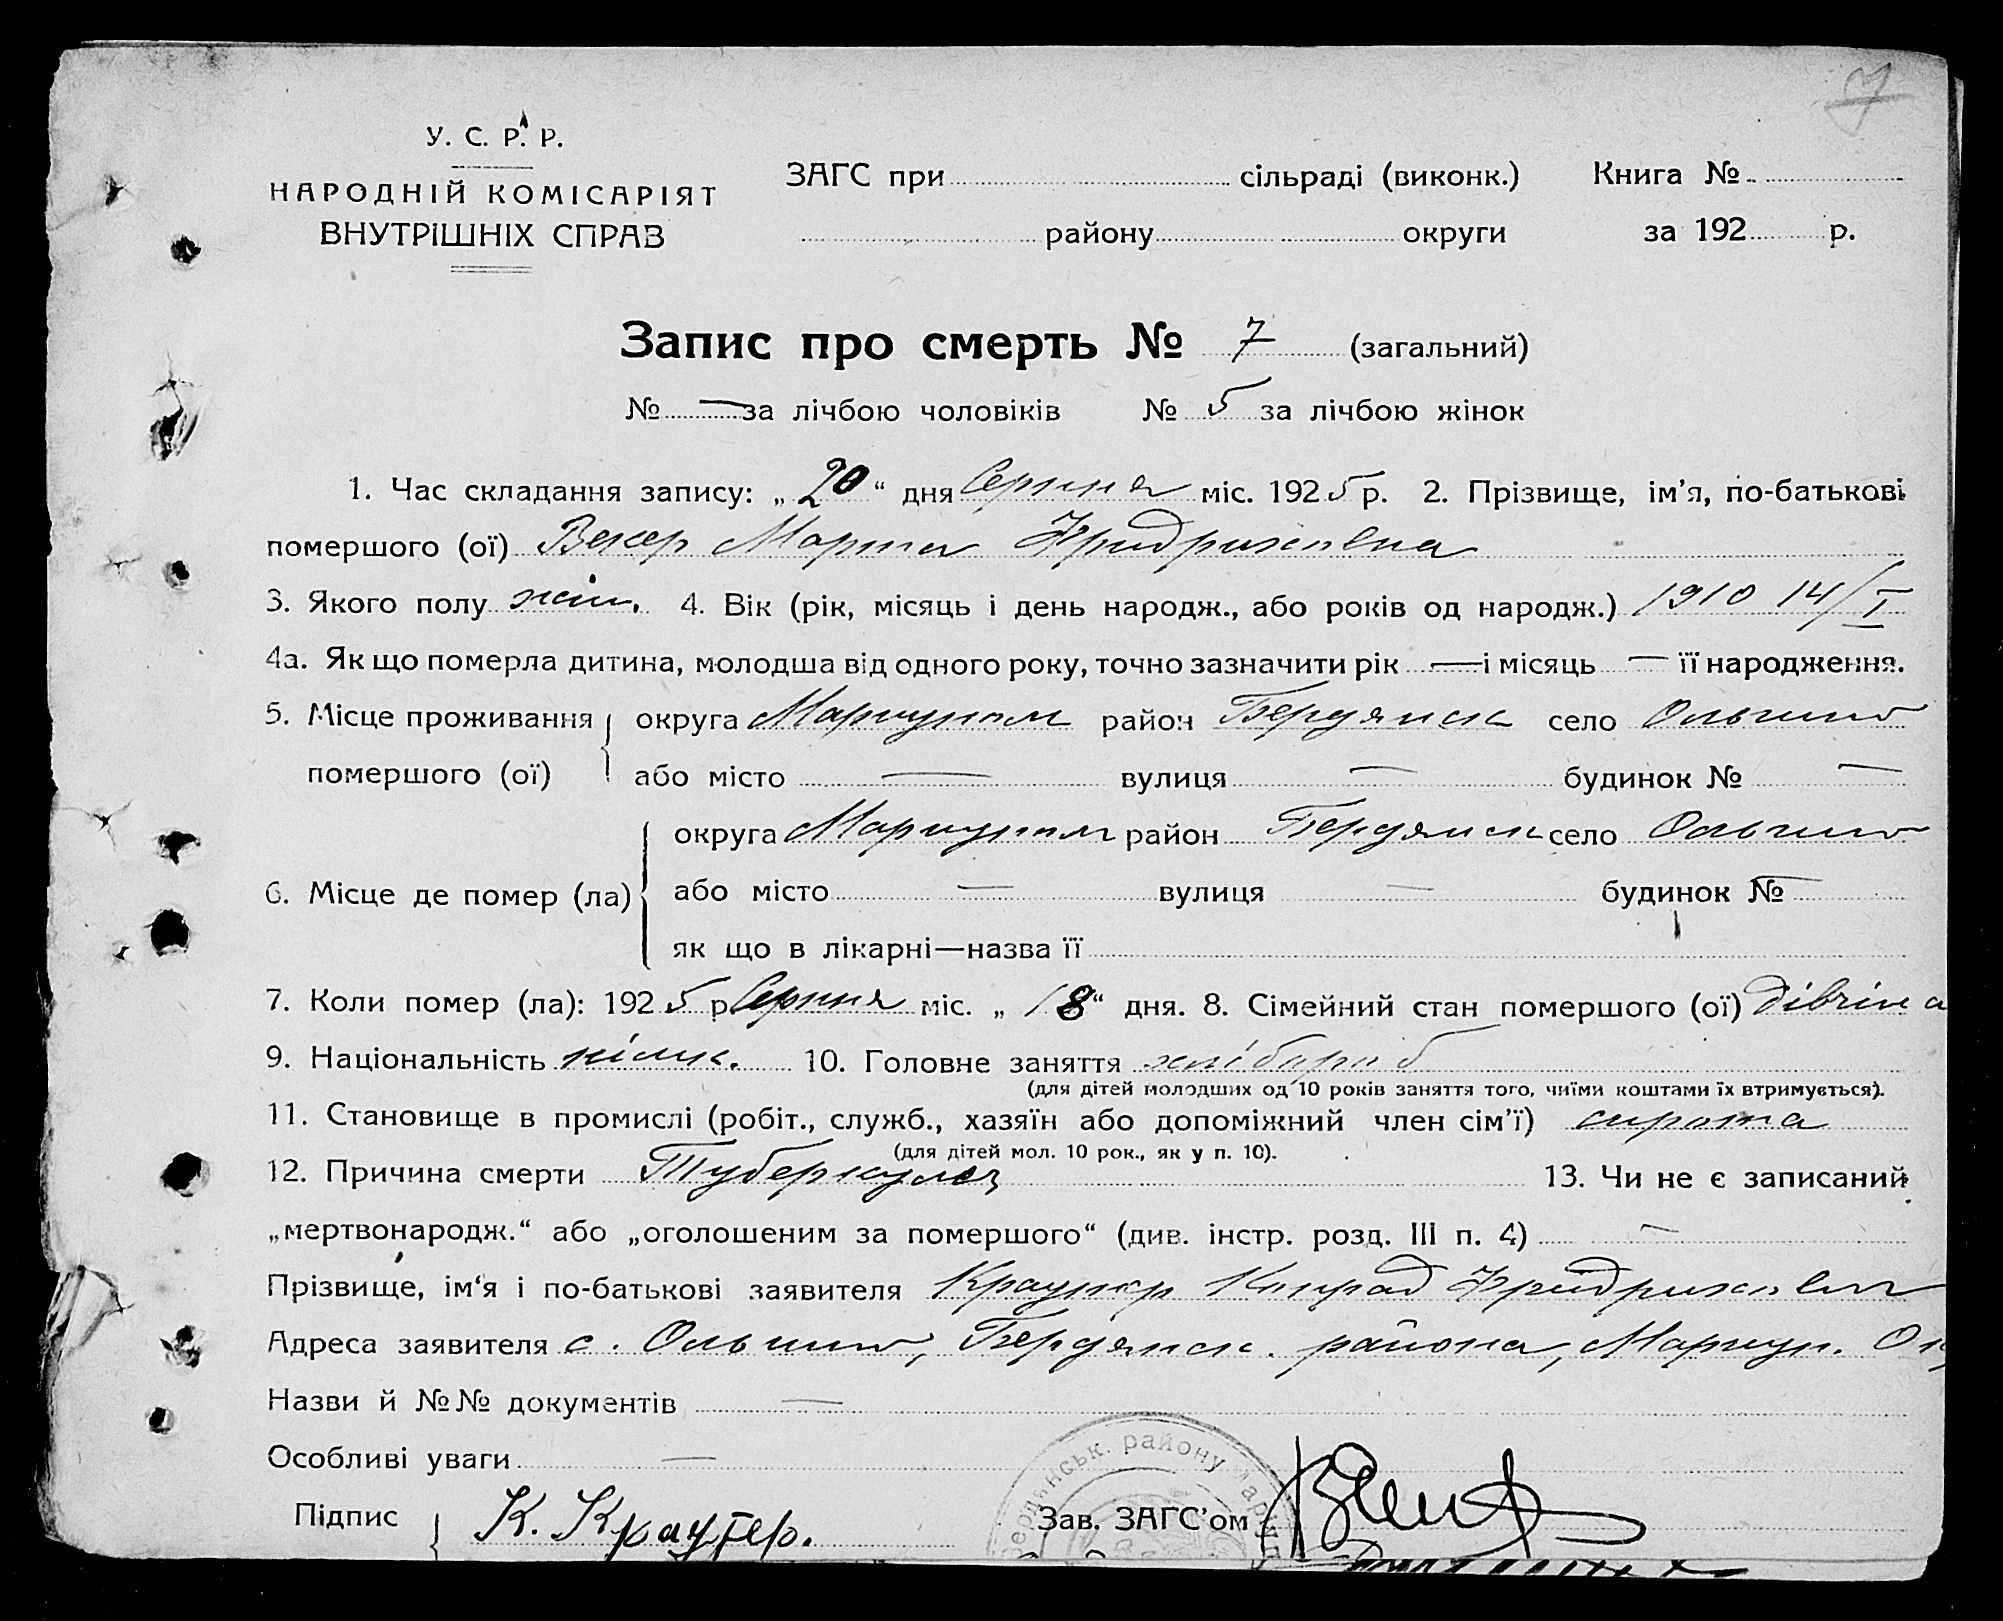 7
У. С. Р. Р.
НАРОДНІЙ КОМІСАРІЯТ
ВНУТРІШНІХ СПРАВ
ЗАГС при сільраді (виконк.) Книга №
району округи за 192 р.
Запис про смерть № 7 (загальний)
№ — за лічбою чоловіків № 5 за лічбою жінок
1. Час складання запису: „20“ дня Серпня міс. 1925 р. 2. Прізвище, ім'я, по-батькові
помершого (ої) Векер Марта Фридриховна
3. Якого полу жін. 4. Вік (рік, місяць і день народж., або років од народж.) 1910 14/I
4а. Як що померла дитина, молодша від одного року, точно зазначити рік — і місяць — її народження.
5. Місце проживання помершого (ої) округа Мариупол район Бердянск село Ольгино
або місто — вулиця — будинок № —
6. Місце де помер (ла) округа Мариупол район Бердянск село Ольгино
або місто — вулиця — будинок № —
як що в лікарні—назва її
7. Коли помер (ла): 1925 р. Серпня міс. „18“ дня. 8. Сімейний стан помершого (ої) дівчіна
9. Національність німк. 10. Головне заняття хлібороб
(для дітей молодших од 10 років заняття того, чиїми коштами їх втримується).
11. Становище в промислі (робіт., служб., хазяїн або допоміжний член сім'ї) сирота
(для дітей мол. 10 рок., як у п. 10).
12. Причина смерти Туберкулоз 13. Чи не є записаний
„мертвонародж.“ або „оголошеним за помершого“ (див. інстр. розд. III п. 4) —
Прізвище, ім'я і по-батькові заявителя Краутер Конрад Фридрихович
Адреса заявителя с. Ольгино, Бердянск. района, Мариуп. Ок
Назви й №№ документів —
Особливі уваги —
Підпис К. Краутер. Зав. ЗАГС'ом
району